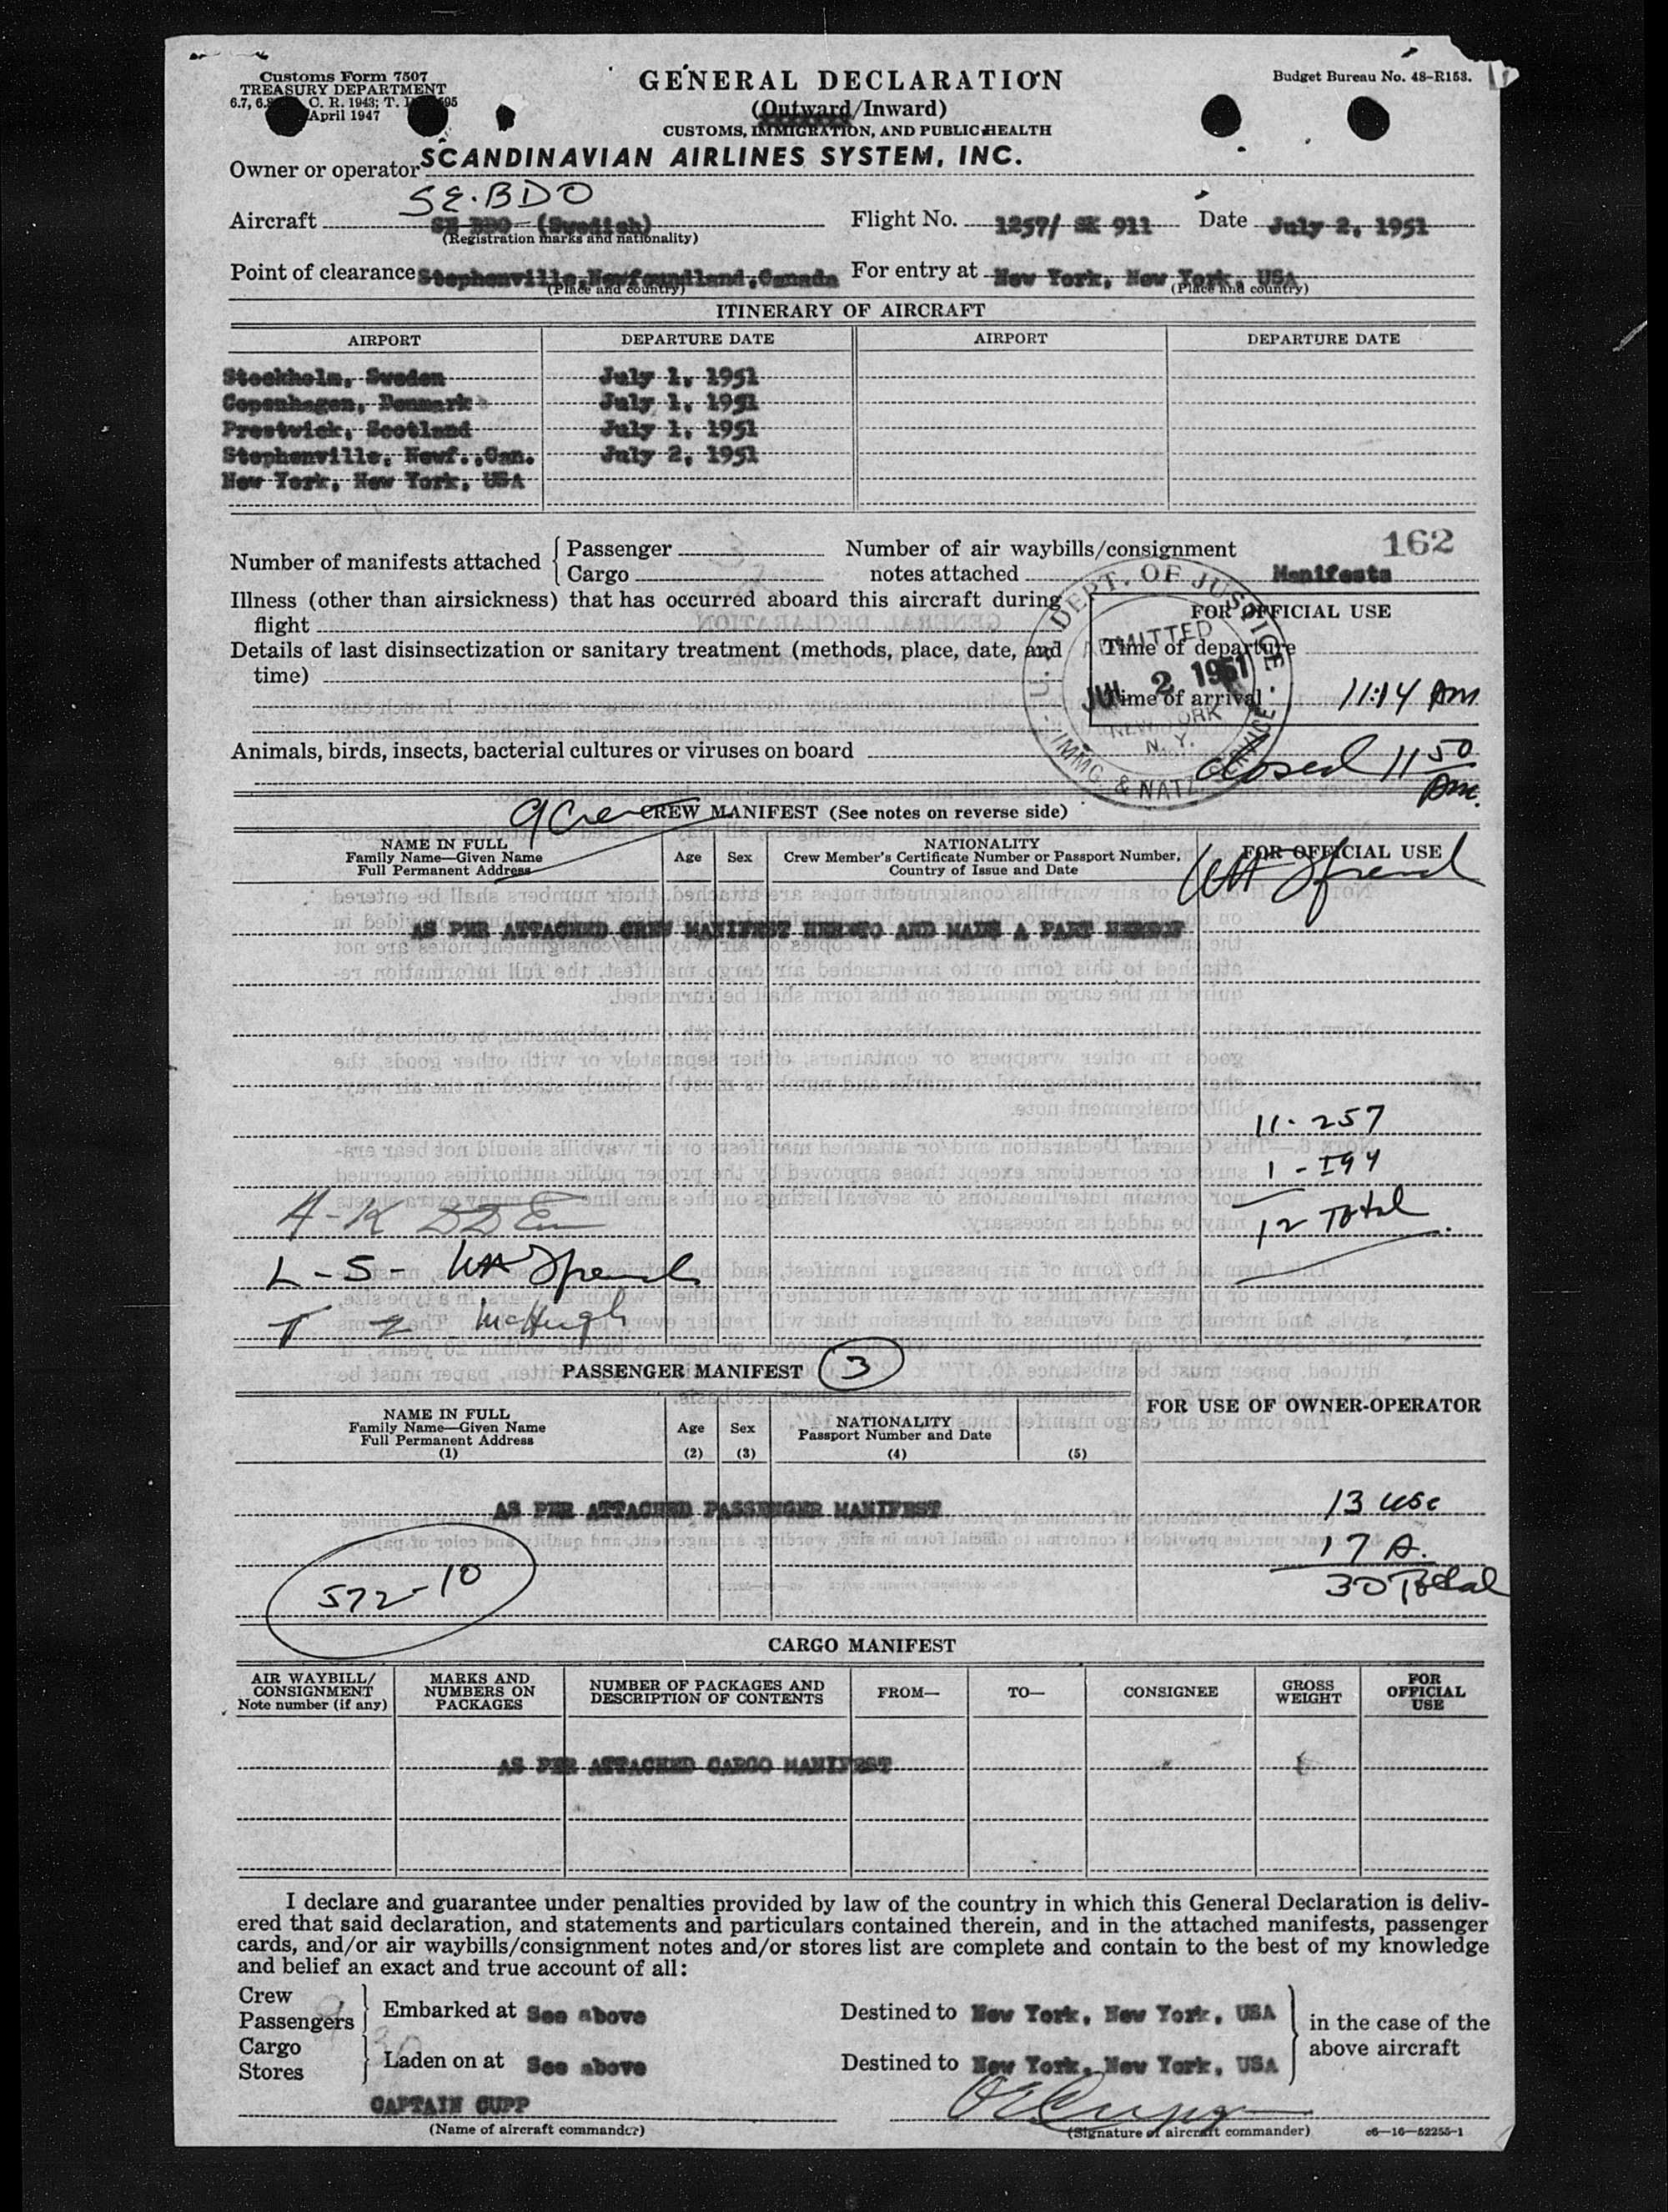 Customs Form 7507
TREASURY DEPARTMENT
C. R. 1943; T.
April 1947
GENERAL DECLARATION
(Outward/Inward)
CUSTOMS, IMMIGRATION, AND PUBLIC HEALTH
Budget Bureau No. 48-R153.
Owner or operator SCANDINAVIAN AIRLINES SYSTEM, INC.
SE.BDO
Aircraft SE BDO (Swedish) Flight No. 1257/ SK 911 Date July 2, 1951
(Registration marks and nationality)
Point of clearance Stephenville, Newfoundland, Canada For entry at New York, New York, USA
(Place and country) (Place and country)
ITINERARY OF AIRCRAFT
AIRPORT DEPARTURE DATE AIRPORT DEPARTURE DATE
Stockholm, Sweden July 1, 1951
Copenhagen, Denmark July 1, 1951
Prestwick, Scotland July 1, 1951
Stephenville, Newf.,Can. July 2, 1951
New York, New York, USA
162
Number of manifests attached { Passenger Number of air waybills/consignment
Cargo notes attached Manifests
Illness (other than airsickness) that has occurred aboard this aircraft during
flight
FOR OFFICIAL USE
Details of last disinsectization or sanitary treatment (methods, place, date, and
time)
Time of departure
Time of arrival 11:14 AM
U. S. DEPT. OF JUSTICE
ADMITTED
JUL 2 1951
NEW YORK
N. Y.
IMMG. & NATZ. SERVICE
Animals, birds, insects, bacterial cultures or viruses on board
closed 11 50
AM.
9 Crew
CREW MANIFEST (See notes on reverse side)
NAME IN FULL
Family Name—Given Name
Full Permanent Address
Age Sex
NATIONALITY
Crew Member's Certificate Number or Passport Number,
Country of Issue and Date
FOR OFFICIAL USE
AS PER ATTACHED CREW MANIFEST HERETO AND MADE A PART HEREOF
11 - 257
1 - I94
12 Total
A-K
L-S-
T Z McHugh
PASSENGER MANIFEST 3
NAME IN FULL
Family Name—Given Name
Full Permanent Address
(1)
Age
(2)
Sex
(3)
NATIONALITY
Passport Number and Date
(4) (5)
FOR USE OF OWNER-OPERATOR
AS PER ATTACHED PASSENGER MANIFEST
13 usc
17 A.
30 Total
572-10
CARGO MANIFEST
AIR WAYBILL/
CONSIGNMENT
Note number (if any)
MARKS AND
NUMBERS ON
PACKAGES
NUMBER OF PACKAGES AND
DESCRIPTION OF CONTENTS
FROM—
TO—
CONSIGNEE
GROSS
WEIGHT
FOR
OFFICIAL
USE
AS PER ATTACHED CARGO MANIFEST
I declare and guarantee under penalties provided by law of the country in which this General Declaration is deliv-
ered that said declaration, and statements and particulars contained therein, and in the attached manifests, passenger
cards, and/or air waybills/consignment notes and/or stores list are complete and contain to the best of my knowledge
and belief an exact and true account of all:
Crew
Passengers
Embarked at See above Destined to New York, New York, USA
Cargo
Stores
Laden on at See above Destined to New York, New York, USA
in the case of the
above aircraft
CAPTAIN CUPP
(Name of aircraft commander) (Signature of aircraft commander) c6—16—52255-1